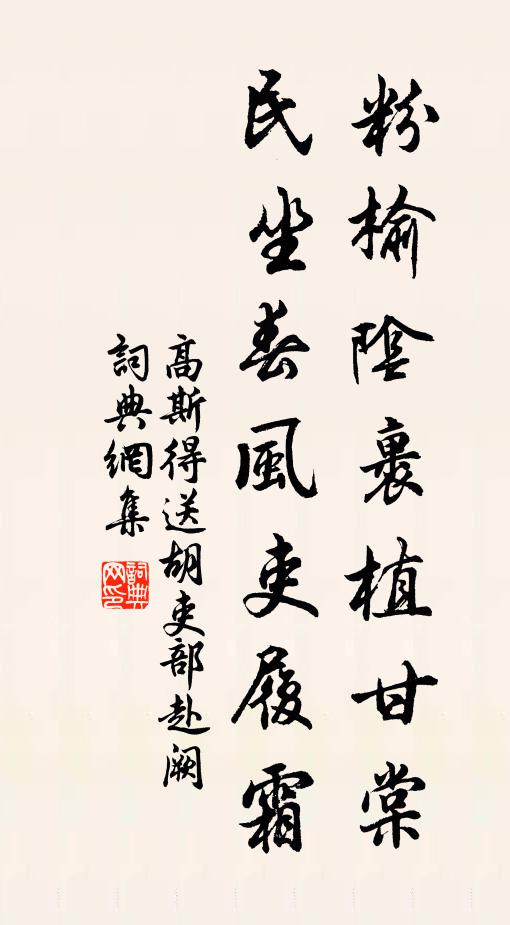 粉榆陰裏植甘棠
民坐春風吏履霜
高斯得送胡吏部赴闕
詞典網集
詞典网印